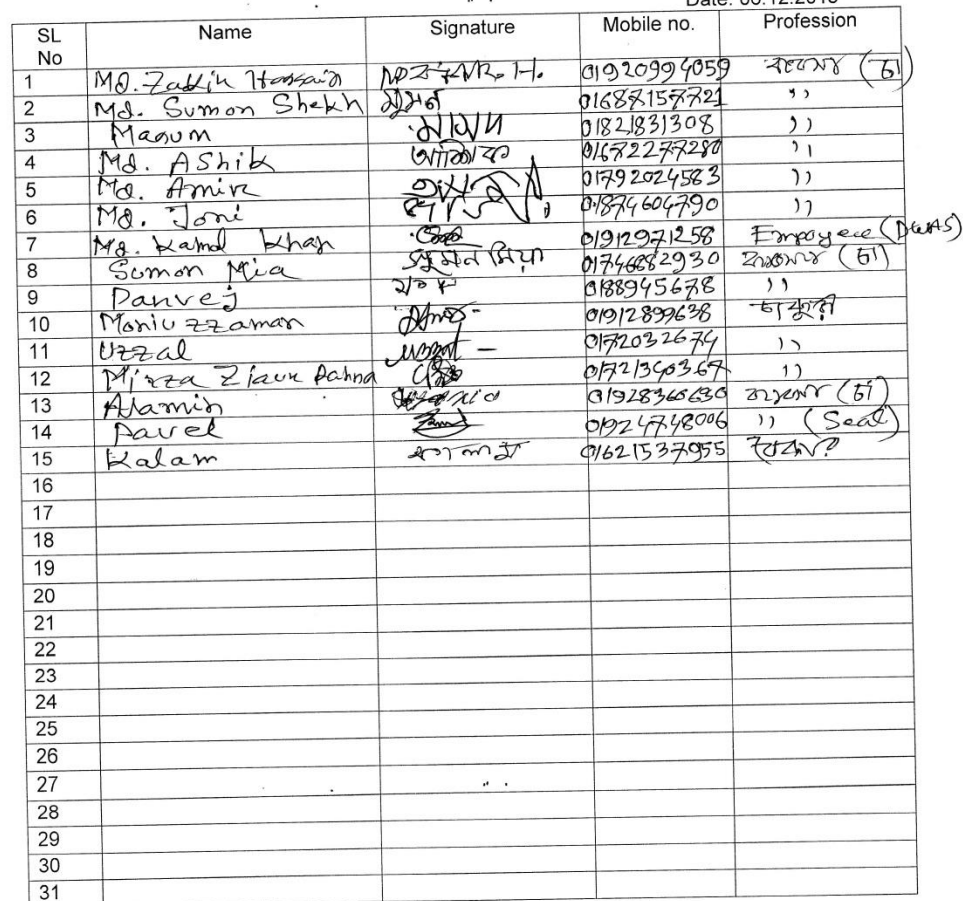 SL No Name Signature Mobile no. Profession
1 Md. Zakkir Hossain 01920994059 (চা)
2 Md. Sumon Shekh সুমন 01687157721 ))
3 Masum মাসুম 01821831308 ))
4 Md. AShik আশিক 01672277280 ))
5 Md. Amir 01792024583 ))
6 Md. Joni 01874604790 ))
7 Md. Kamal Khan 01912971258 Empoyee (DWAS)
8 Sumon Mia সুমন মিয়া 01746682930 ব্যবসা (চা)
9 Parvej 0188945678 ))
10 Moniuzzaman 01912899638 চাকুরী
11 Uzzal 0172032674 ))
12 Mirza Ziaur 01721340367 ))
13 Alamin 01928360630 ব্যবসা (চা)
14 Pavel 01924748006 )) (Seal)
15 Kalam কালাম 01621537955
16
17
18
19
20
21
22
23
24
25
26
27
28
29
30
31